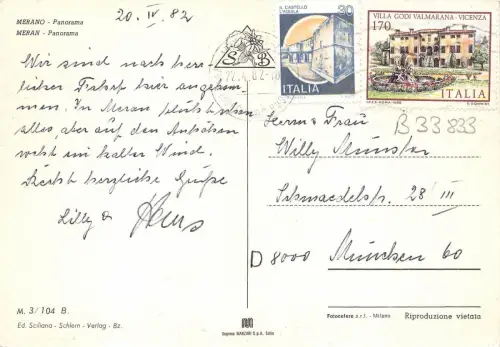 MERANO - Panorama
MERAN - Panorama
20. IV. 82
Wir sind nach herr-
licher Fahrt hier angekom-
men. In Meran blüht schon
alles, aber auf den
weht ein kalter Wind.
Recht herzliche Grüße
Lilly &
S B
22.4.82-18
IL CASTELLO
L'AQUILA
30
ITALIA
VILLA GODI VALMARANA - VICENZA
170
ITALIA
B 33 833
Herrn & Frau
Willy Münster
28/III
D 8000 München 60
M. 3/104 B.
Ed. Sciliana - Schlern - Verlag - Bz.
Fotocelere s.r.l. - Milano
Riproduzione vietata